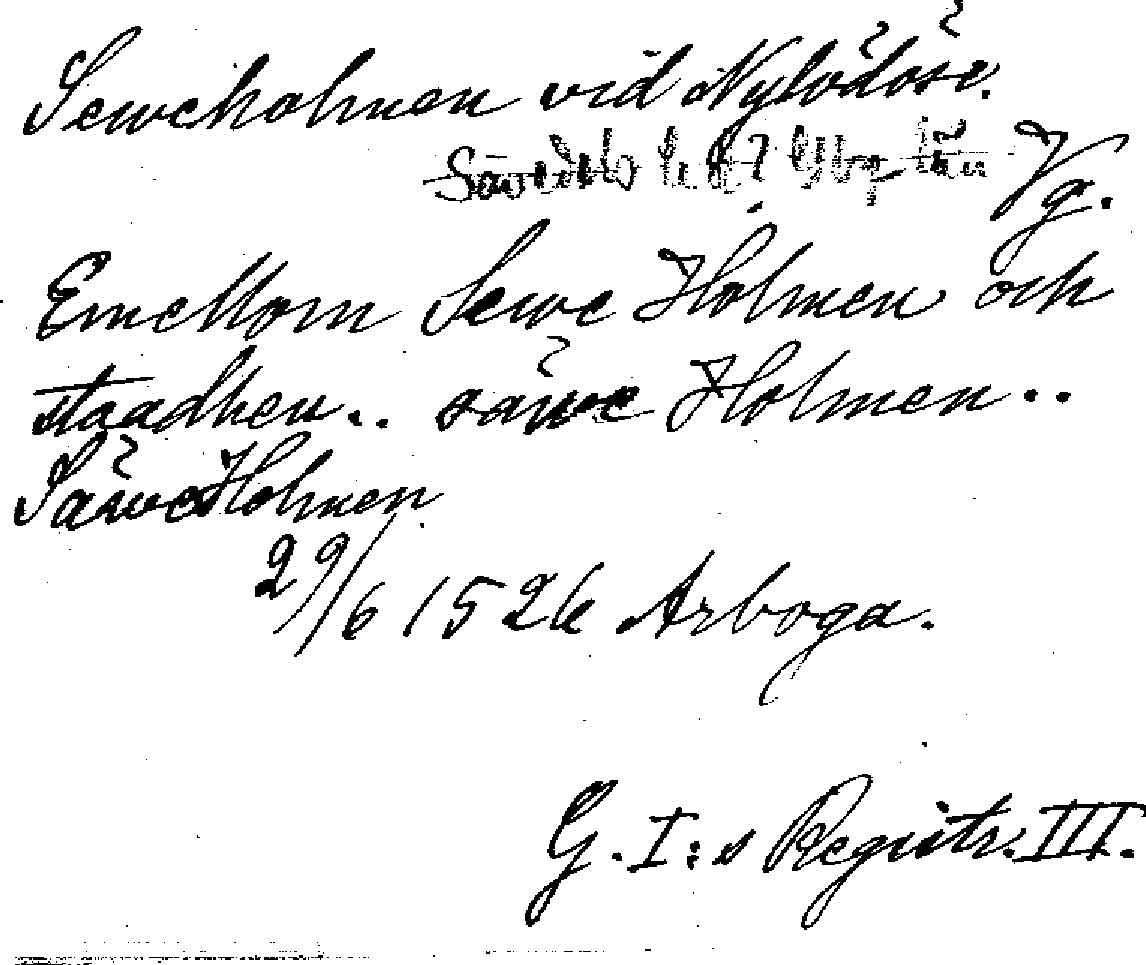 Seweholmen vid Nylödöse.
Sävedals hd? Gbg län Vg.
Emellom Sewe Holmen och
staadhen.. säwe Holmen..
SäweHolmen
29/6 1526 Arboga.
G. I:s Registr. III.